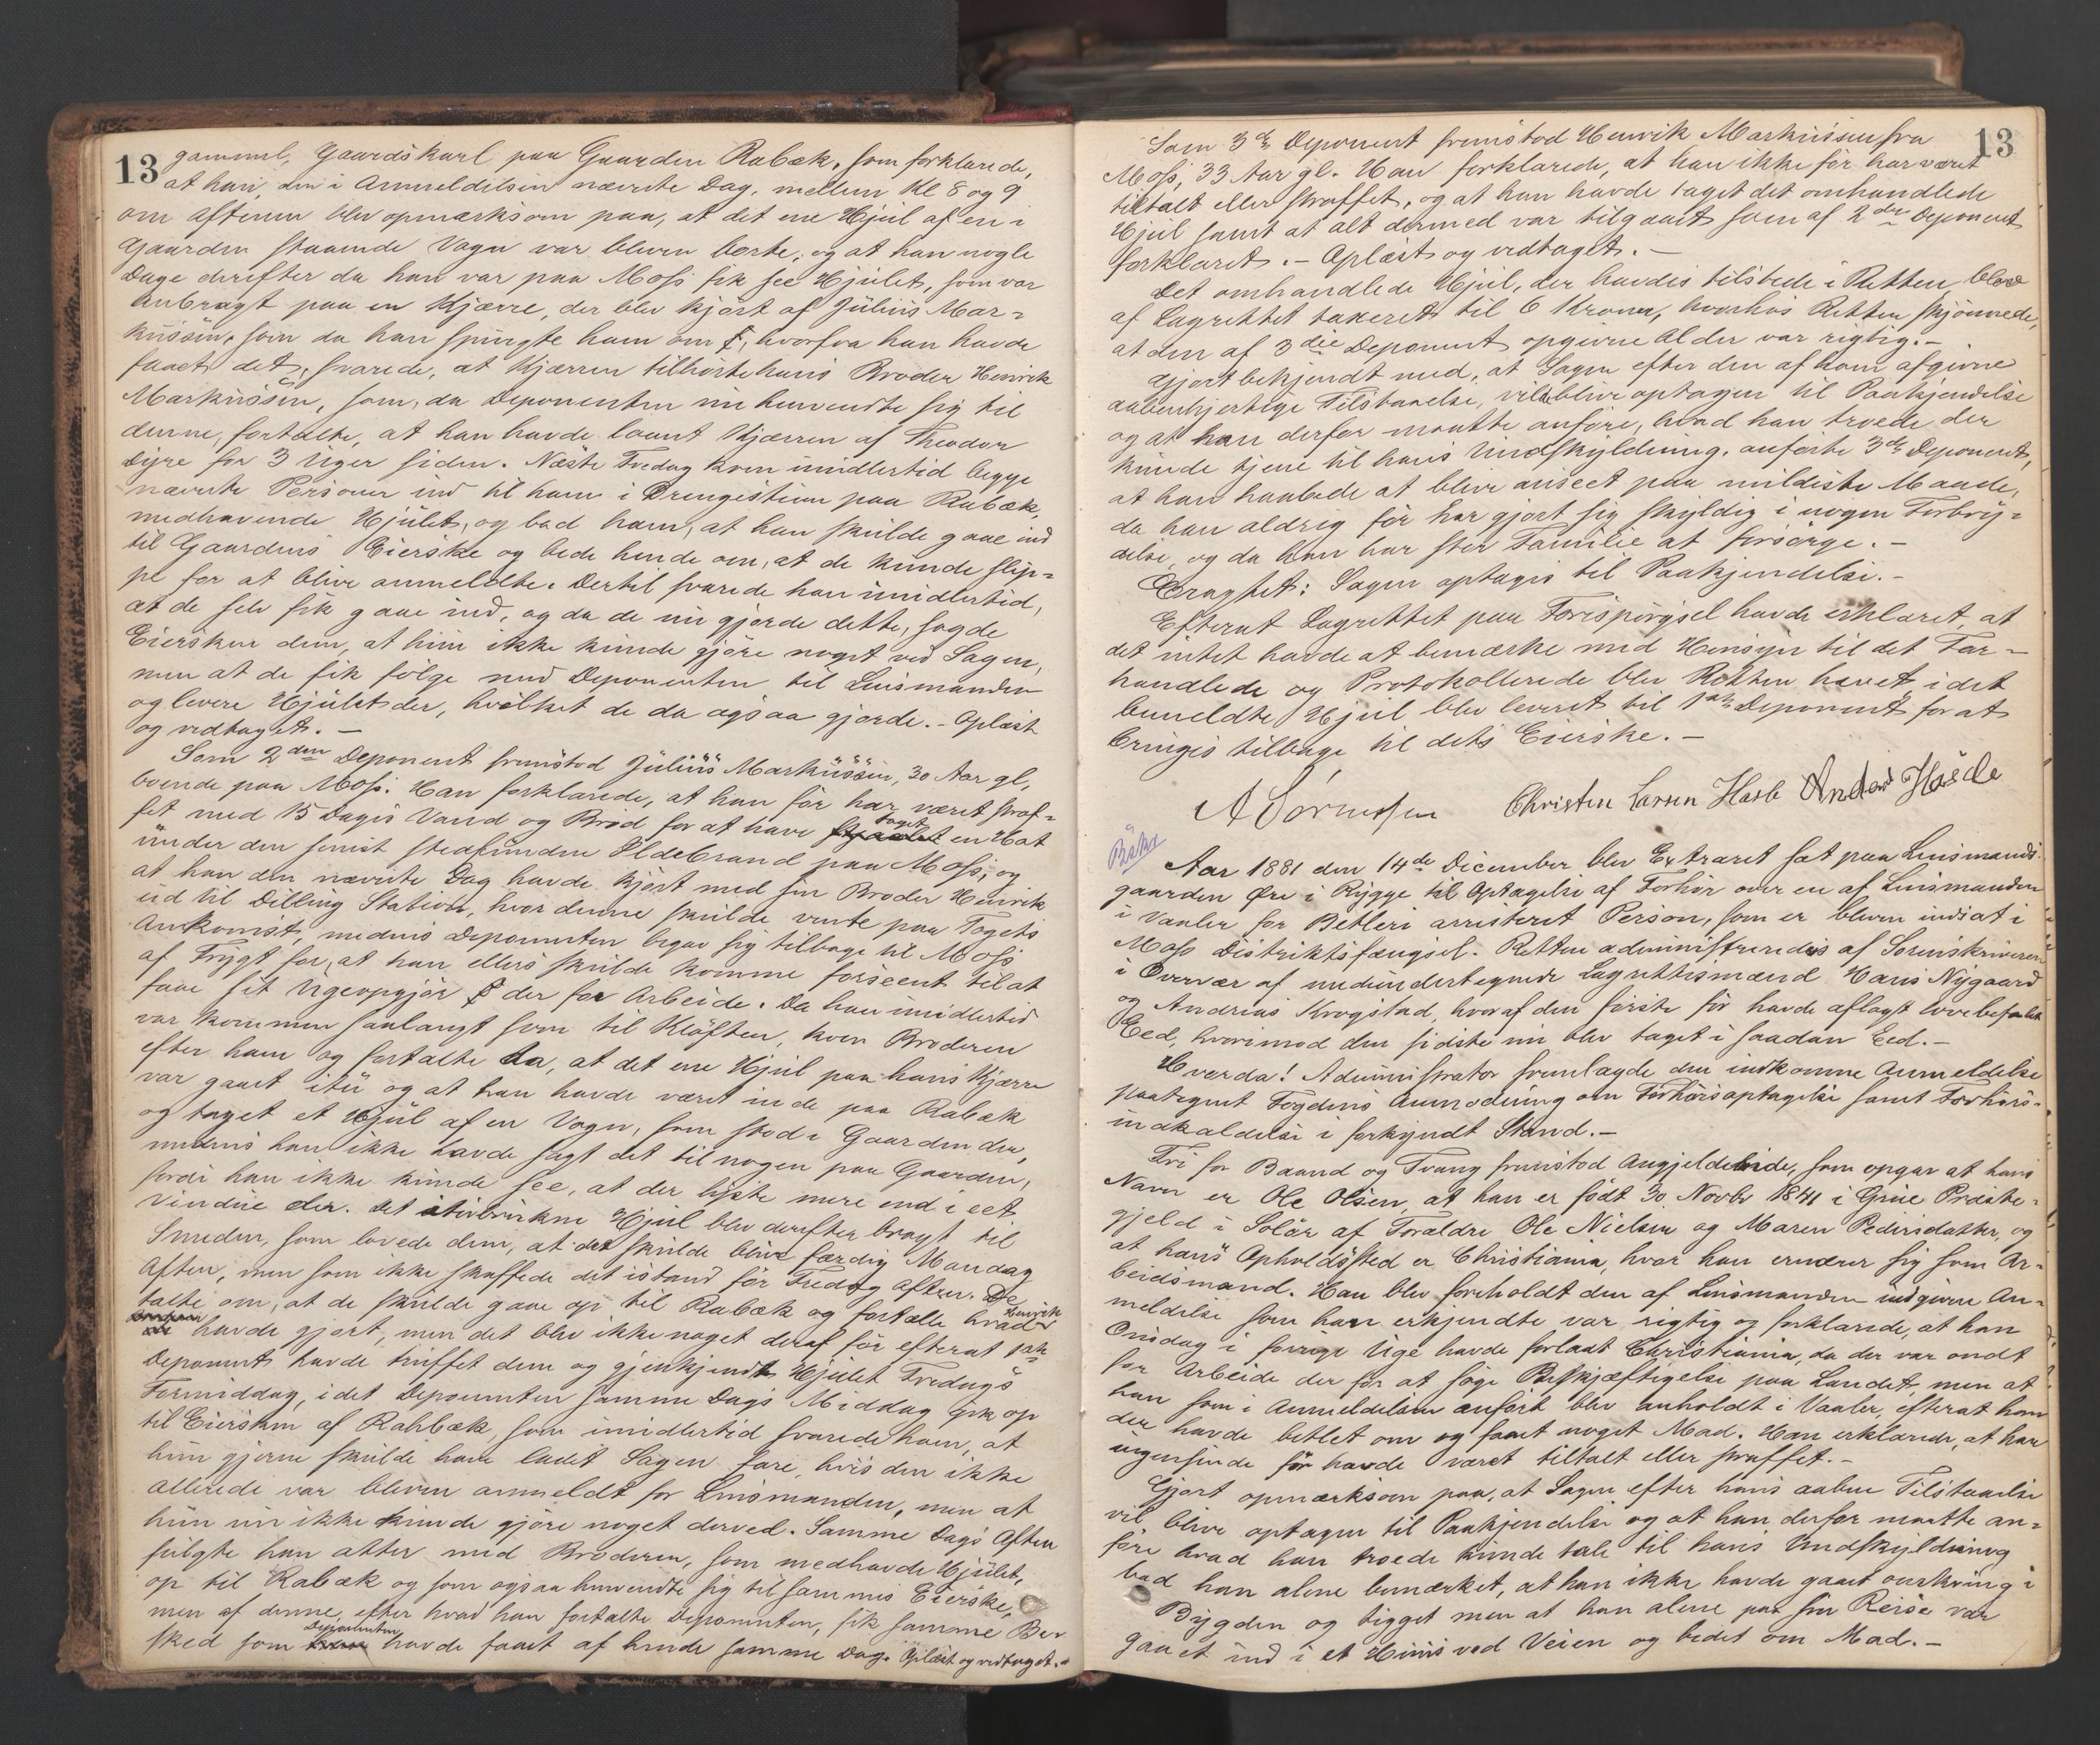 13
gammel, Gaardskarl paa Gaarden Rabæk, som forklarede,
at han, den i Anmeldelsen nævnte Dag, mellem Kl 8 og 9
om Aftenen blev opmærksom paa, at det ene Hjul af en i
Gaarden staaende Vogn var bleven borte, og at han nogle
Dage derefter da han var paa Moss fik see Hjulet, som var
anbragt paa en Kjærre, der blev kjørt af Julius Mar-
kussen, som da han spurgte ham om, hvorfra han havde
faaet det, svarede, at Kjærren tilhørte hans Broder Henrik
Markussen, som, da Deponenten nu henvendte sig til
denne, fortalte, at han havde laant Kjærren af Theodor
Dyre for 3 Uger siden. Næste Fredag kom imidlertid begge
nævnte Personer ind til ham i Drengestuen paa Rabæk,
medhavende Hjulet, og bad ham, at han skulde gaae ind
til Gaardens Eierske og bede hende om, at de kunde slip-
pe for at blive anmeldte. Dertil svarede han imidlertid,
at de selv fik gaae ind, og da de nu gjorde dette, sagde
Eiersken dem, at hun ikke kunde gjøre noget ved Sagen,
men at de fik følge med Deponenten til Lensmanden
og levere Hjulet der, hvilket de da ogsaa gjorde. - Oplæst
og vedtaget. -
Som 2den Deponent fremstod Julius Markussen, 30 Aar gl,
boende paa Moss. Han forklarede, at han før har været straf-
fet med 15 Dages Vand og Brød for at have taget en Hat
under den senest stedfundne Ildebrand paa Moss; og
at han den nævnte Dag havde kjørt med sin Broder Henrik
ud til Dilling Station, hvor denne skulde vente paa Togets
Ankomst, medens Deponenten begav sig tilbage til Moss
af Frygt for, at han ellers skulde komme forseent til at
faae sit Ugeopgjør der for Arbeide. Da han imidlertid
var kommen saalangt som til Kløften, kom Broderen
efter ham og fortalte da, at det ene Hjul paa hans Kjærre
var gaaet itu og at han havde været inde paa Rabæk
og taget et Hjul af en Vogn, som stod i Gaarden der,
medens han ikke havde sagt det til nogen paa Gaarden,
fordi han ikke kunde see, at der lyste mere end i eet
Vindue der. Det itubrukne Hjul blev derefter bragt til
Smeden, som lovede dem, at det skulde blive færdig Mandag
Aften, men som ikke skaffede det istand før Fredag Aften. De
talte om, at de skulde gaae op til Rabæk og fortælle hvad Henrik
havde gjort, men det blev ikke noget deraf før efterat 1ste
Deponent havde truffet dem og gjenkjendt Hjulet Fredags
Formiddag, idet Deponenten samme Dags Middag gik op
til Eiersken af Rabbæk, som imidlertid svarede ham, at
hun gjerne skulde have ladet Sagen fare, hvis den ikke
allerede var bleven anmeldt for Lensmanden, men at
hun nu ikke kunde gjøre noget derved. Samme Dags Aften
fulgte han atter med Broderen, som medhavde Hjulet,
op til Rabæk og som ogsaa henvendte sig til sammes Eierske,
men af denne, efter hvad han fortalte Deponenten, fik samme Be-
sked som Deponenten havde faaet af hende samme Dag. Oplæst og vedtaget. -
13
Som 3die Deponent fremstod Henrik Markussen fra
Moss, 33 Aar gl. Han forklarede, at han ikke før har været
tiltalt eller straffet, og at han havde taget det omhandlede
Hjul samt at alt dermed var tilgaaet som af 2den Deponent
forklaret. - Oplæst og vedtaget. -
Det omhandlede Hjul, der havdes tilstede i Retten, blev
af Lagrettet taxeret til 6 Kroner, hvorhos Retten skjønnede,
at den af 3die Deponent opgivne Alder var rigtig. -
Gjort bekjendt med, at Sagen efter den af ham afgivne
aabenhjertige Tilstaaelse, vilde blive optagen til Paakjendelse
og at han derfor maatte anføre, hvad han troede der
kunde tjene til hans Undskyldning, anførte 3die Deponent,
at han haabede at blive anseet paa mildeste Maade,
da han aldrig før har gjort sig skyldig i nogen Forbry-
delse, og da han har stor Familie at forsørge. -
Eragtet: Sagen optages til Paakjendelse. -
Efterat Lagrettet paa Forespørgsel havde erklæret, at
det intet havde at bemærke med Hensyn til det For-
handlede og Protokollerede blev Retten hævet idet
bemeldte Hjul blev leveret til 1ste Deponent for at
bringes tilbage til dets Eierske. -
Christen Larsen Anders
Aar 1881 den 14de December blev Extraret sat paa Lensmands-
gaarden Øre i Rygge til Optagelse af Forhør over en af Lensmanden
i Vaaler for Betleri arresteret Person, som er bleven indsat i
Moss Distriktsfængsel. Retten administreredes af Sorenskriveren
i Overvær af medundertegnede Lagrettesmænd Hans Nygaard
og Andreas Krogstad, hvoraf den første før havde aflagt lovbefalet
Eed, hvorimod den sidste nu blev taget i saadan Eed. -
Hvorda! Administrator fremlagde den indkomne Anmeldelse
paategnet Fogdens Anmodning om Forhørsoptagelse samt Forhørs-
indkaldelse i forkyndt Stand. -
Fri for Baand og Tvang fremstod Angjeldende, som opgav at hans
Navn er Ole Olsen, at han er født 30 Novbr 1841 i Grue Præste-
gjeld i Solør af Forældre Ole Nielsen og Maren Pedersdatter, og
at hans Opholdssted er Christiania, hvor han ernærer sig som Ar-
beidsmand. Han blev foreholdt den af Lensmanden indgivne An-
meldelse som han erkjendte var rigtig og forklarede, at han
Onsdag i forrige Uge havde forladt Christiania, da der var ondt
for Arbeide der for at søge Beskjæftigelse paa Landet, men at
han som i Anmeldelsen anført blev anholdt i Vaaler, efterat han
der havde betlet om og faaet noget Mad. Han erklærede, at han
ingensinde før havde været tiltalt eller straffet. -
Gjort opmærksom paa, at Sagen efter hans aabne Tilstaaelse
vil blive optagen til Paakjendelse og at han derfor maatte an-
føre hvad han troede kunde tale til hans Undskyldning
bad han alene bemærket, at han ikke havde gaaet omkring i
Bygden og tigget men at han alene paa sin Reise var
gaaet ind i et Huus ved Veien og bedet om Mad. -